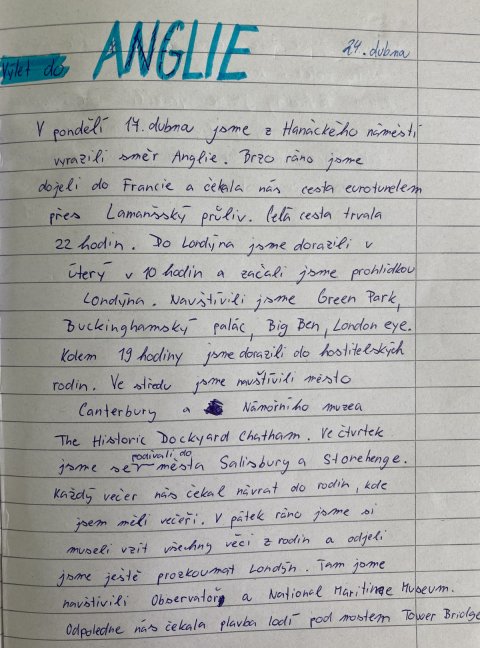 Výlet do ANGLIE 24. dubna
V pondělí 17. dubna jsme z Hanáckého náměstí
vyrazili směr Anglie. Brzo ráno jsme
dojeli do Francie a čekala nás cesta eurotunelem
přes Lamanšský průliv. Celá cesta trvala
22 hodin. Do Londýna jsme dorazili v
úterý v 10 hodin a začali jsme prohlídkou
Londýna. Navštívili jsme Green Park,
Buckinghamský palác, Big Ben, London eye.
Kolem 19 hodiny jsme dorazili do hostitelských
rodin. Ve středu jsme navštívili město
Canterbury a Námořního muzea
The Historic Dockyard Chatham. Ve čtvrtek
jsme se podívali do města Salisbury a Stonehenge.
Každý večer nás čekal návrat do rodin, kde
jsem měli večeři. V pátek ráno jsme si
museli vzít všechny věci z rodin a odjeli
jsme ještě prozkoumat Londýn. Tam jsme
navštívili Observatoř a National Maritime Museum.
Odpoledne nás čekala plavba lodí pod mostem Tower Bridge